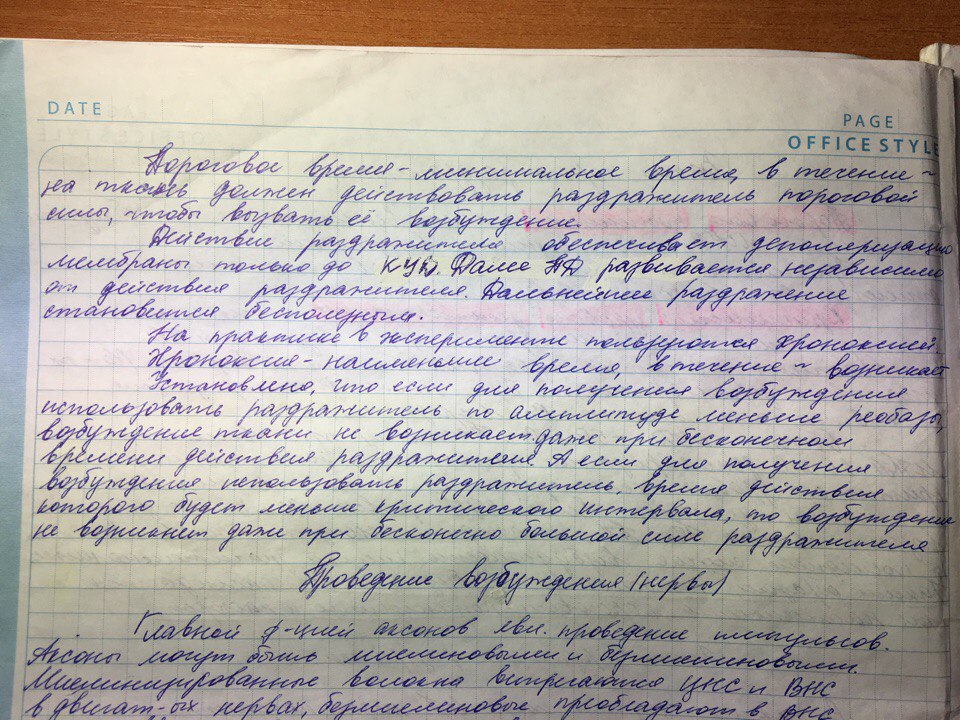 DATE
PAGE
OFFICE STYLE
Пороговое время - минимальное время, в течение ~
на ткань должен действовать раздражитель пороговой
силы, чтобы вызвать её возбуждение.
Действие раздражителя обеспечивает деполяризацию
мембраны только до КУД. Далее ПД развивается независимо
от действия раздражителя. Дальнейшее раздражение
становится бесполезным.
На практике в эксперименте пользуются хронаксией.
Хронаксия - наименьшее время, в течение ~ возникает
Установлено, что если для получения возбуждения
использовать раздражитель по амплитуде меньше реобазы,
возбуждение ткани не возникает даже при бесконечном
времени действия раздражителя. А если для получения
возбуждения использовать раздражитель, время действия
которого будет меньше критического интервала, то возбуждение
не возникнит даже при бесконечно большой силе раздражителя
Проведение возбуждения (нервы)
Главной ф-цией аксонов явл. проведение импульсов.
Аксоны могут быть миелиновыми и безмиелиновыми.
Миелинизированные волокна ЦНС и ВНС
в двигат-ых нервах, безмиелиновые преобладают в ВНС